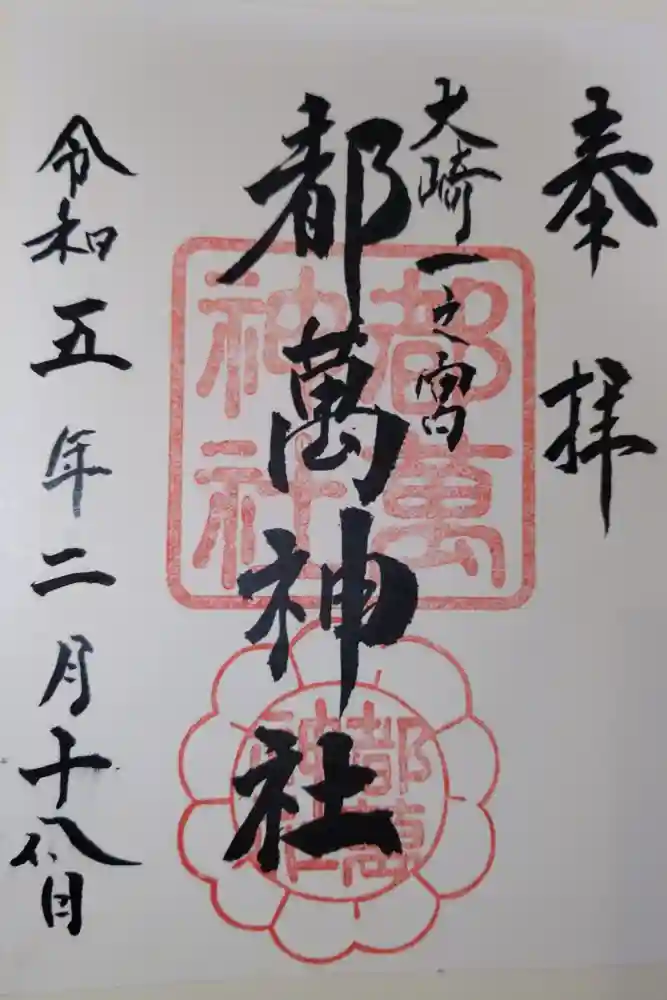 奉拝
大崎一之宮
都萬神社
都萬神社
都萬神社
令和五年二月十八日